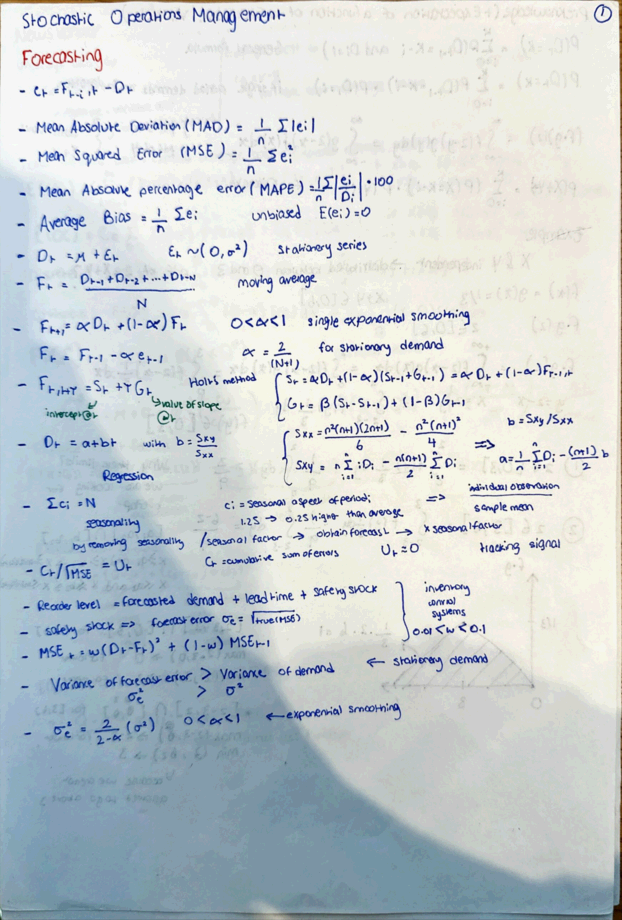 Stochastic Operations Management ①
Forecasting
- eₜ = Fₜ₋ᵢ,ₜ - Dₜ
- Mean Absolute Deviation (MAD) = 1/n Σ|ei|
- Mean Squared Error (MSE) = 1/n Σei²
- Mean Absolute percentage error (MAPE) = 1/n Σ|ei/Di| · 100
- Average Bias = 1/n Σei unbiased E(ei) = 0
- Dₜ = μ + εₜ εₜ ~ (0, σ²) stationary series
- Fₜ = (Dₜ₋₁ + Dₜ₋₂ + ... + Dₜ₋N)/N moving average
- Fₜ₊₁ = αDₜ + (1-α)Fₜ 0<α<1 single exponential smoothing
Fₜ = Fₜ₋₁ - αeₜ₋₁ α = 2/(N+1) for stationary demand
- Fₜ,ₜ₊τ = Sₜ + τGₜ Holt's method { Sₜ = αDₜ + (1-α)(Sₜ₋₁ + Gₜ₋₁) = αDₜ + (1-α)Fₜ₋₁,ₜ
intercept @t value of slope @t Gₜ = β(Sₜ - Sₜ₋₁) + (1-β)Gₜ₋₁
- Dₜ = a + bt with b = Sxy/Sxx { Sxx = n²(n+1)(2n+1)/6 - n²(n+1)²/4 ⇒ b = Sxy/Sxx
Regression Sxy = n Σⁿᵢ₌₁ iDᵢ - n(n+1)/2 Σⁿᵢ₌₁ Dᵢ a = 1/n Σⁿᵢ₌₁ Dᵢ - (n+1)/2 b
- Σci = N ci = seasonal aspect of period i ⇒ individual observation / sample mean
seasonality 1.25 → 0.25 higher than average
by removing seasonality /seasonal factor → obtain forecast → × seasonal factor
- Cₜ/√MSE = Uₜ Cₜ = cumulative sum of errors Uₜ ≈ 0 tracking signal
- Reorder level = forecasted demand + lead time + safety stock } inventory control systems
- safety stock => forecast error σₑ = √true(MSE)
- MSEₜ = w(Dₜ - Fₜ)² + (1-w) MSEₜ₋₁ 0.01<w<0.1
- Variance of forecast error > Variance of demand ← stationary demand
σₑ² > σ²
- σₑ² = 2/(2-α) (σ²) 0<α<1 ← exponential smoothing